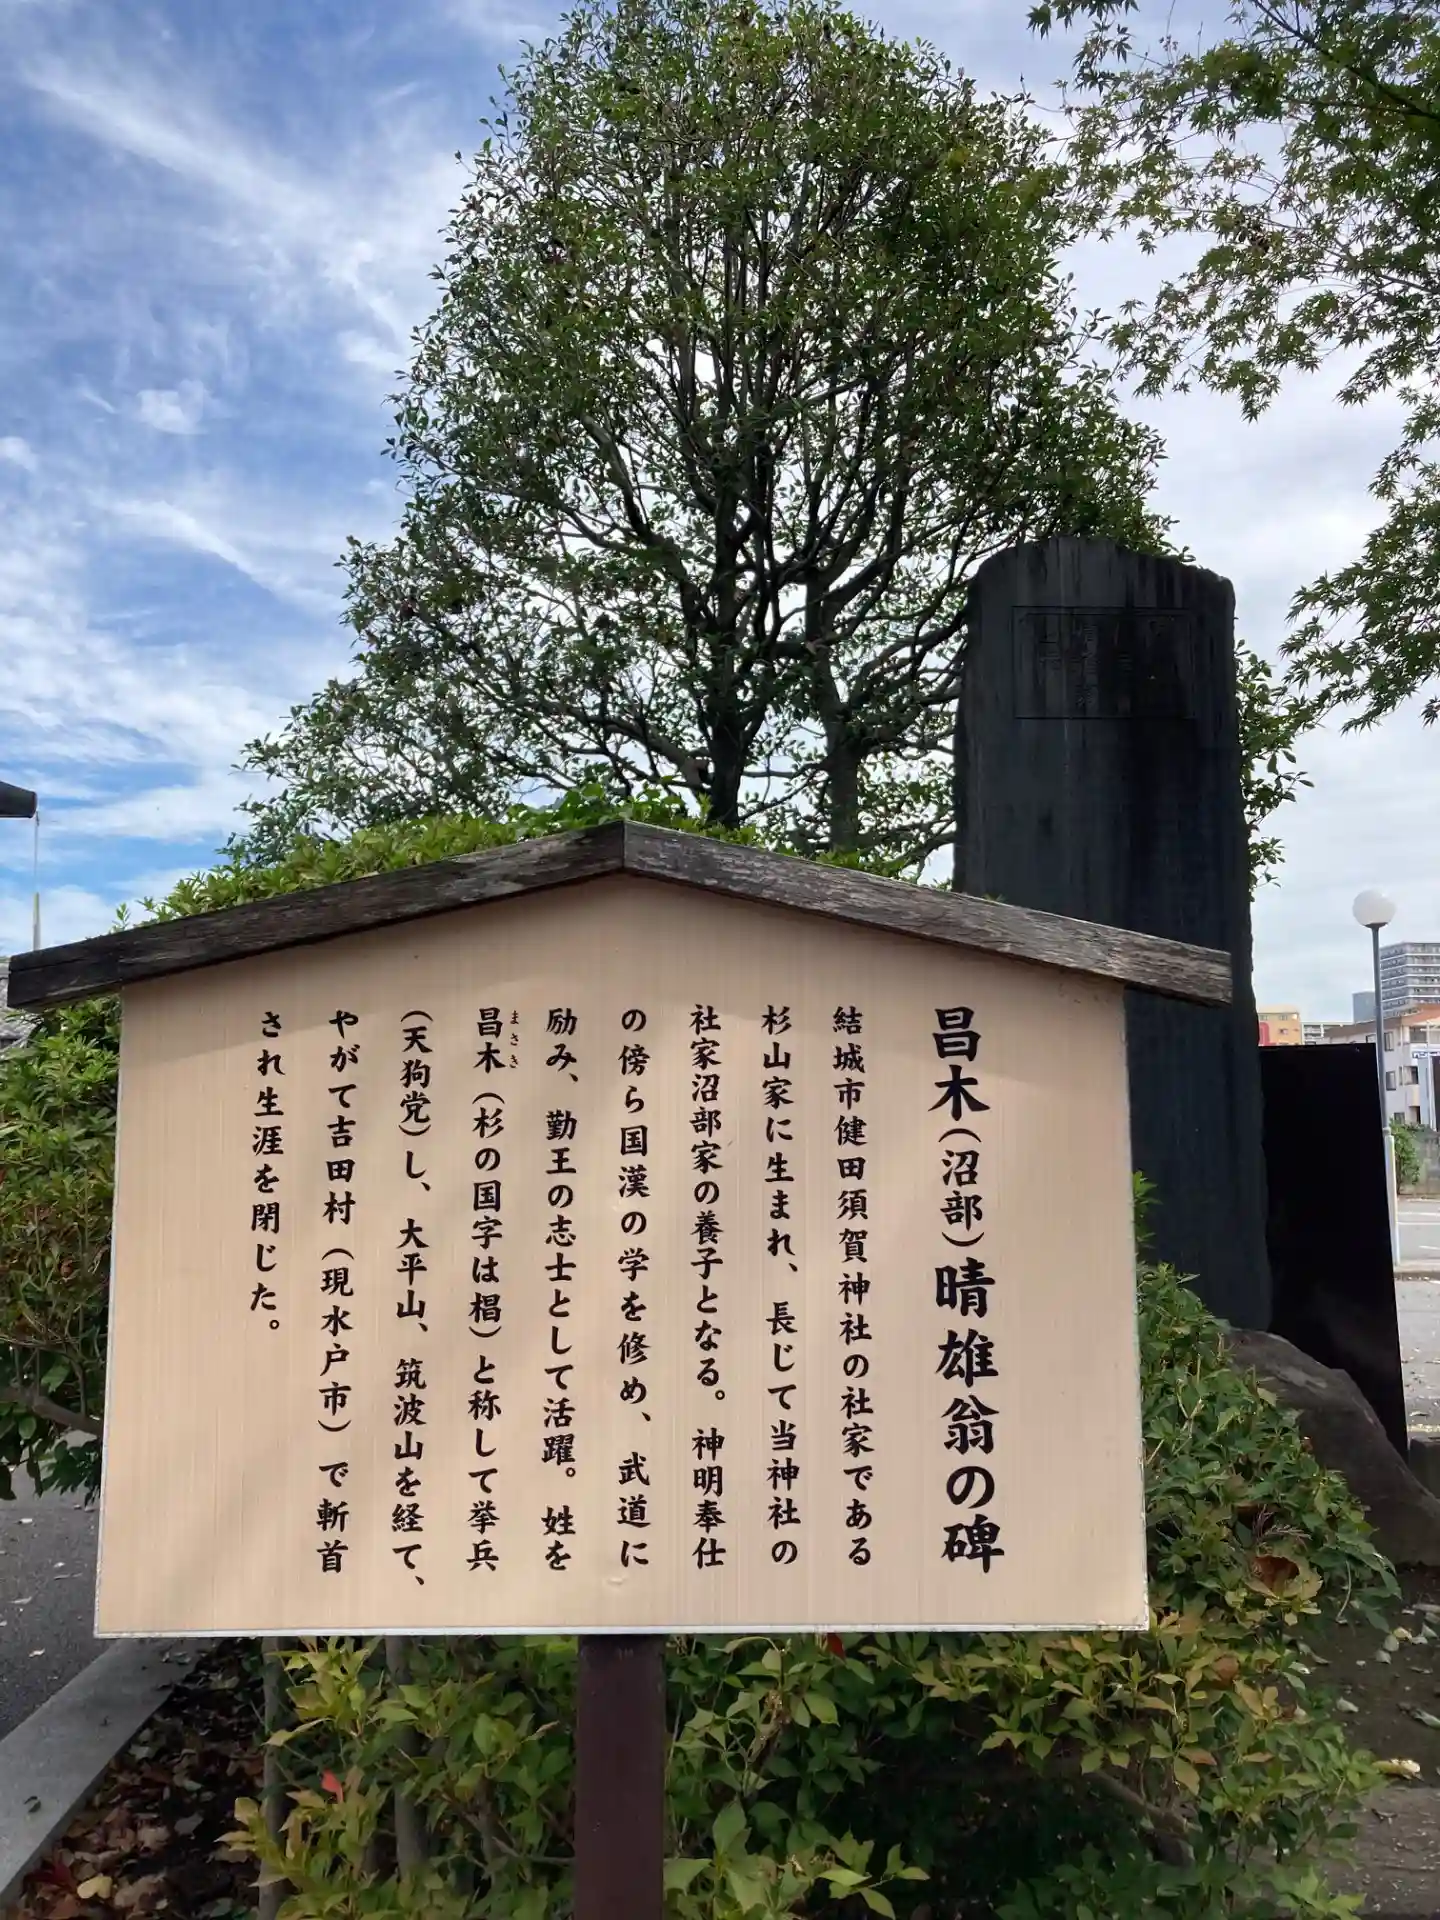 昌木(沼部)晴雄翁の碑
結城市健田須賀神社の社家である
杉山家に生まれ、長じて当神社の
社家沼部家の養子となる。神明奉仕
の傍ら国漢の学を修め、武道に
励み、勤王の志士として活躍。姓を
昌木(杉の国字は椙)と称して挙兵
まさき
(天狗党)し、大平山、筑波山を経て、
やがて吉田村(現水戸市)で斬首
され生涯を閉じた。